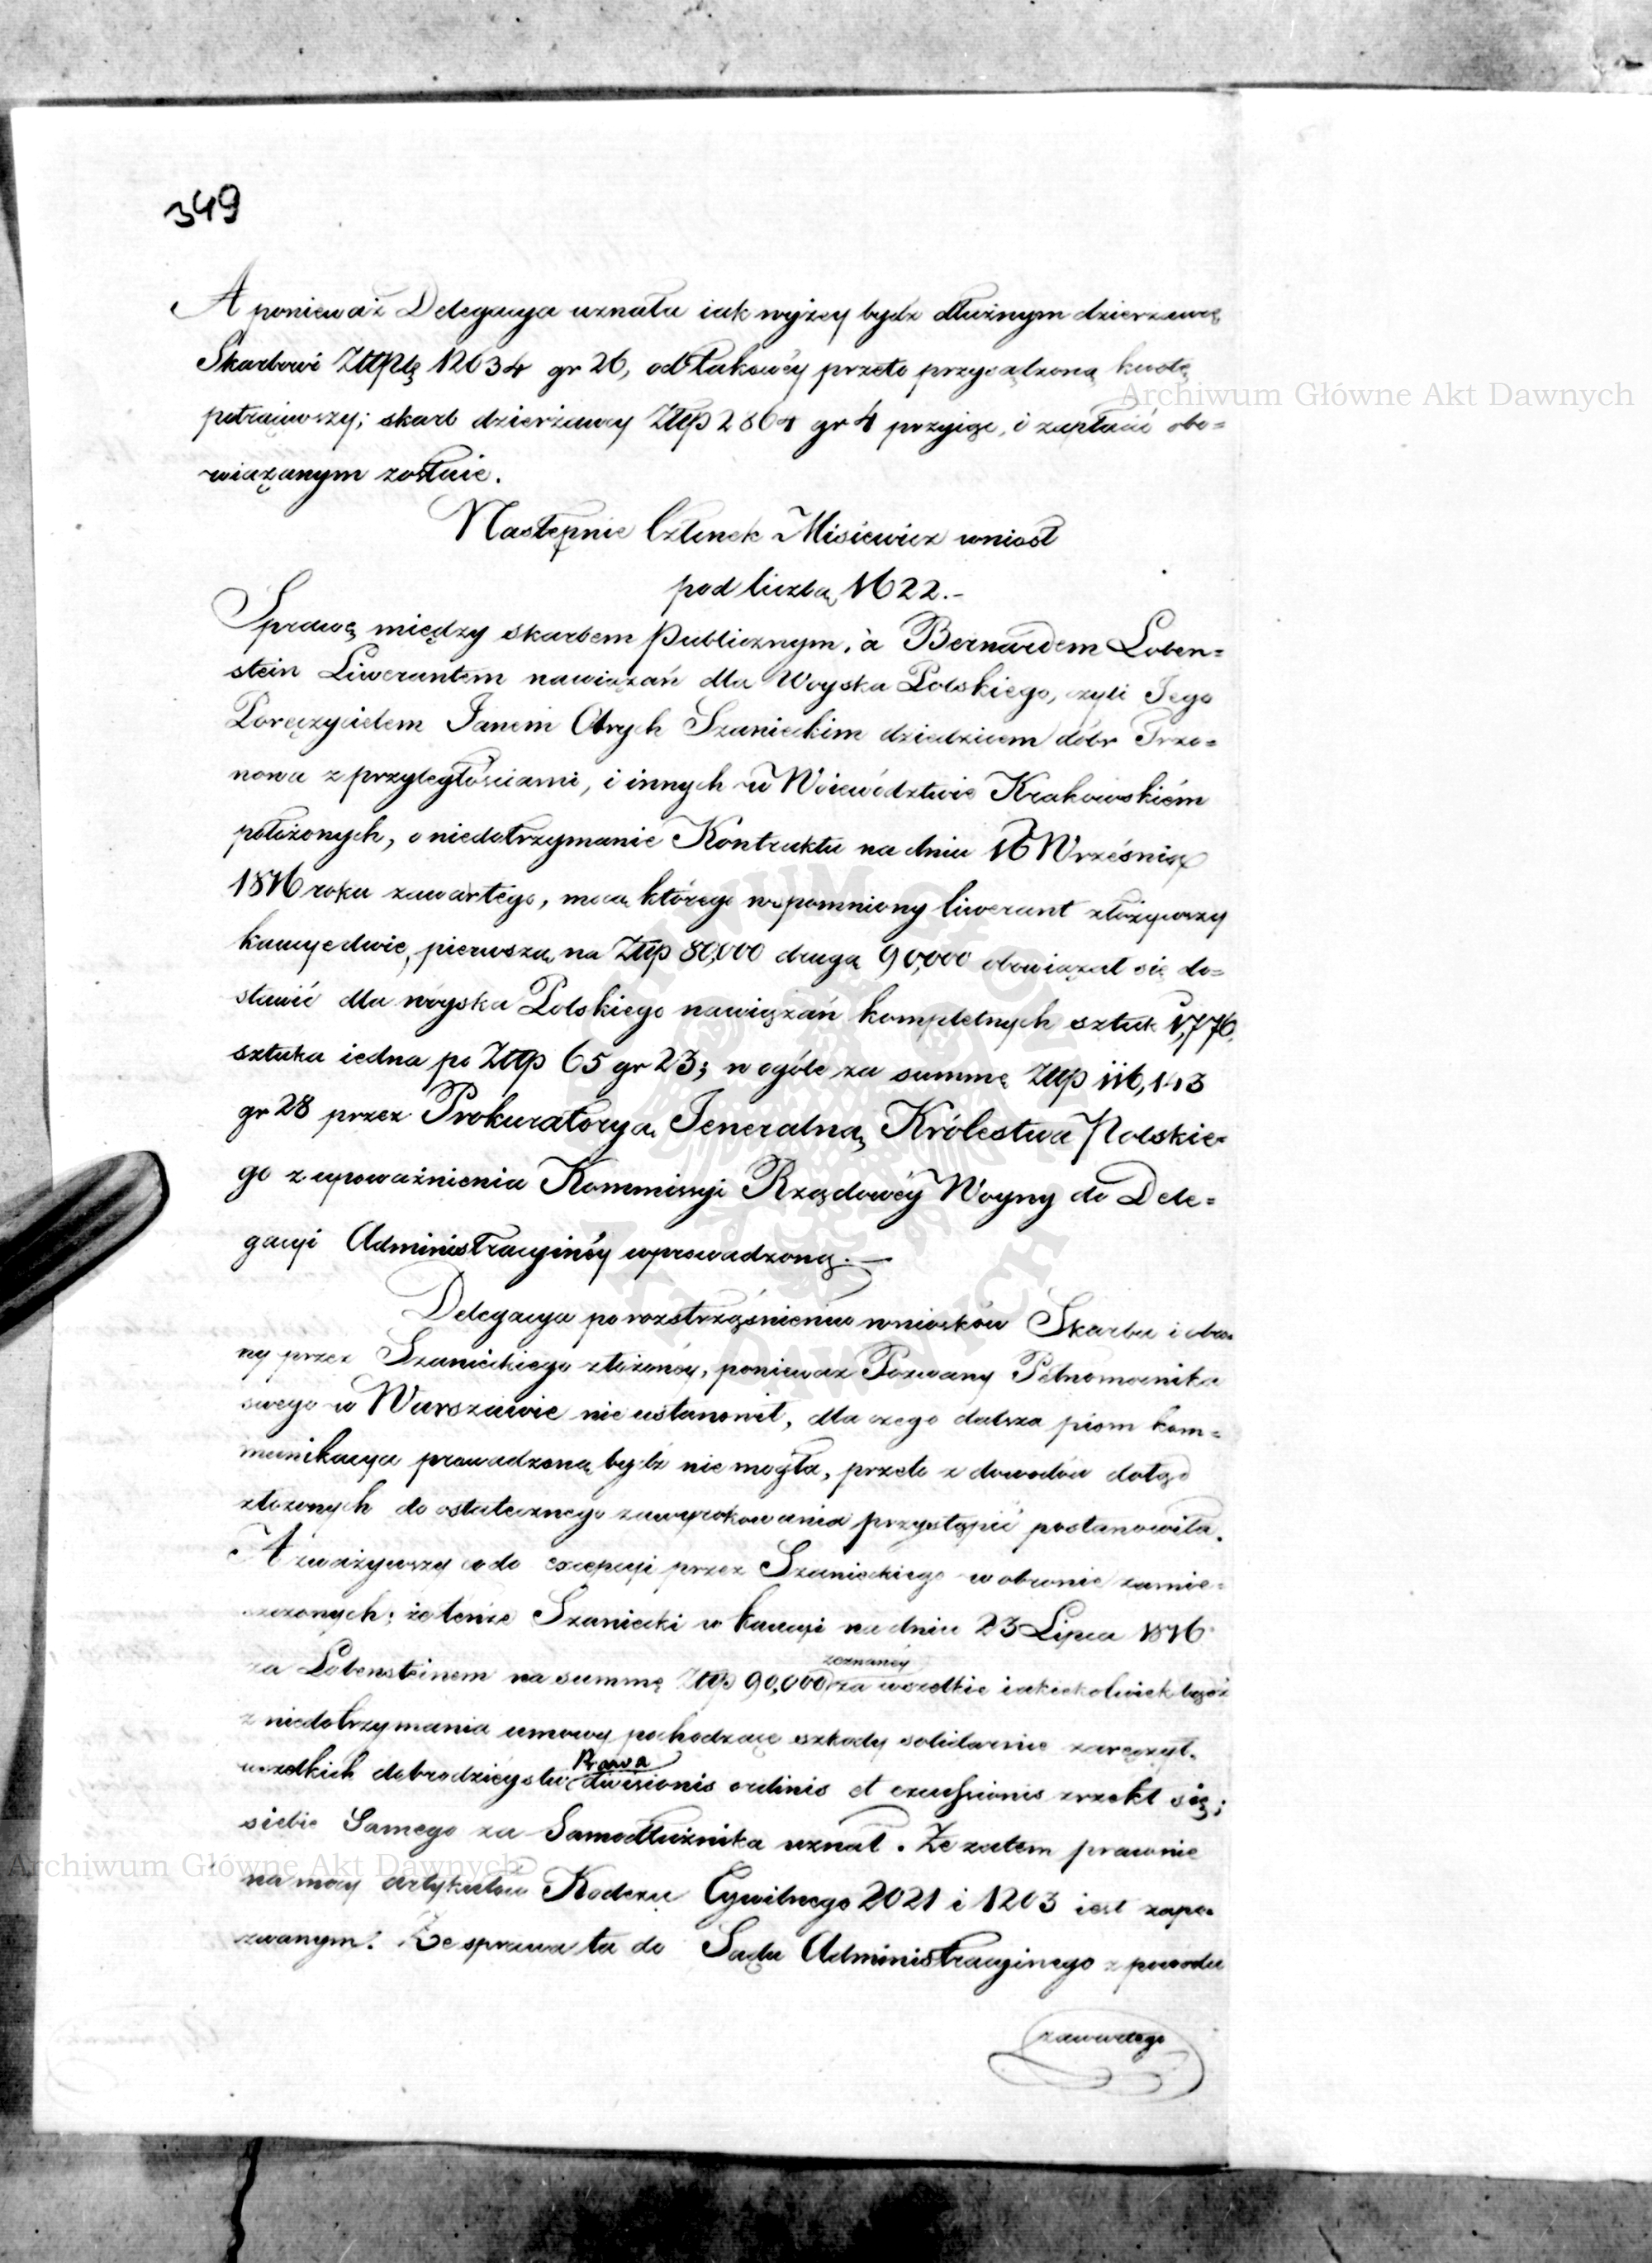 349
A ponieważ Delegacya uznała iak wyżey bydź dłużnym dzierzawcę
Skarbowi Złłp 12634 gr 26, od takowéy przeto przysądzoną kwotę
potrąciwszy; skarb dzierżawcy Złłp 2864 gr 4 przyiąć, i zapłacić obo=
wiązanym zostaie.
Następnie Członek Misiewicz wniosł
pod liczbą 1622.-
Sprawę między skarbem Publicznym, a Bernardem Loben=
stein Liwerantem nawiązań dla Woyska Polskiego, czyli Jego
Poręczycielem Janem Olrych Szanieckim dziedzicem dóbr
nowa z przyległościami, i innych w Woiewództwie Krakowskiém
położonych, o niedotrzymanie Kontraktu na dniu 16 Września
1816 roku zawartego, mocą którego wspomniony liwerant złożywszy
kaucye dwie, pierwszą na Złłp 80,000 drugą 90,000 obowiązał się do=
stawić dla woyska Polskiego nawiązań kompletnych sztuk 1,776,
sztuka iedna po Złłp 65 gr 23; w ogóle za summę Złłp 116,143
gr 28 przez Prokuratoryą Jeneralną Królestwa Polskie=
go z upoważnienia Kommissyi Rządowéy Woyny do Dele=
gacyi Administracyinéy wprowadzoną.—
Delegacya po rozstrząśnieniu wniosków Skarbu i obro=
ny przez Szanieckiego złożonéy, ponieważ Pozwany Pełnomocnika
swego w Warszawie nie ustanowił, dla czego dalsza pism kom=
munikacya prowadzoną bydź nie mogła, przeto z dowodów dotąd
złożonych do ostatecznego zawyrokowania przystąpić postanowiła.
A zważywszy co do excepcyi przez Szanieckiego w obronie zamie=
szczonych; że tenże Szaniecki w kaucyi na dniu 23 Lipca 1816
za Lobensteinem na summę Złłp 90,000 zeznanéy za wszelkie iakiekolwiek bądź
z niedotrzymania umowy pochodzące szkody solidarnie zaręczył.
wszelkich dobrodzieystw Prawa divisionis ordinis et excussionis zrzekł się;
siebie Samego za Samodłużnika uznał. Że zatem prawnie
na mocy artykułów Kodexu Cywilnego 2021 i 1203 iest zapo=
zwanym. Że sprawa ta do Sądu Administracyinego z powodu
zawartego
Archiwum Główne Akt Dawnych
Archiwum Główne Akt Dawnych